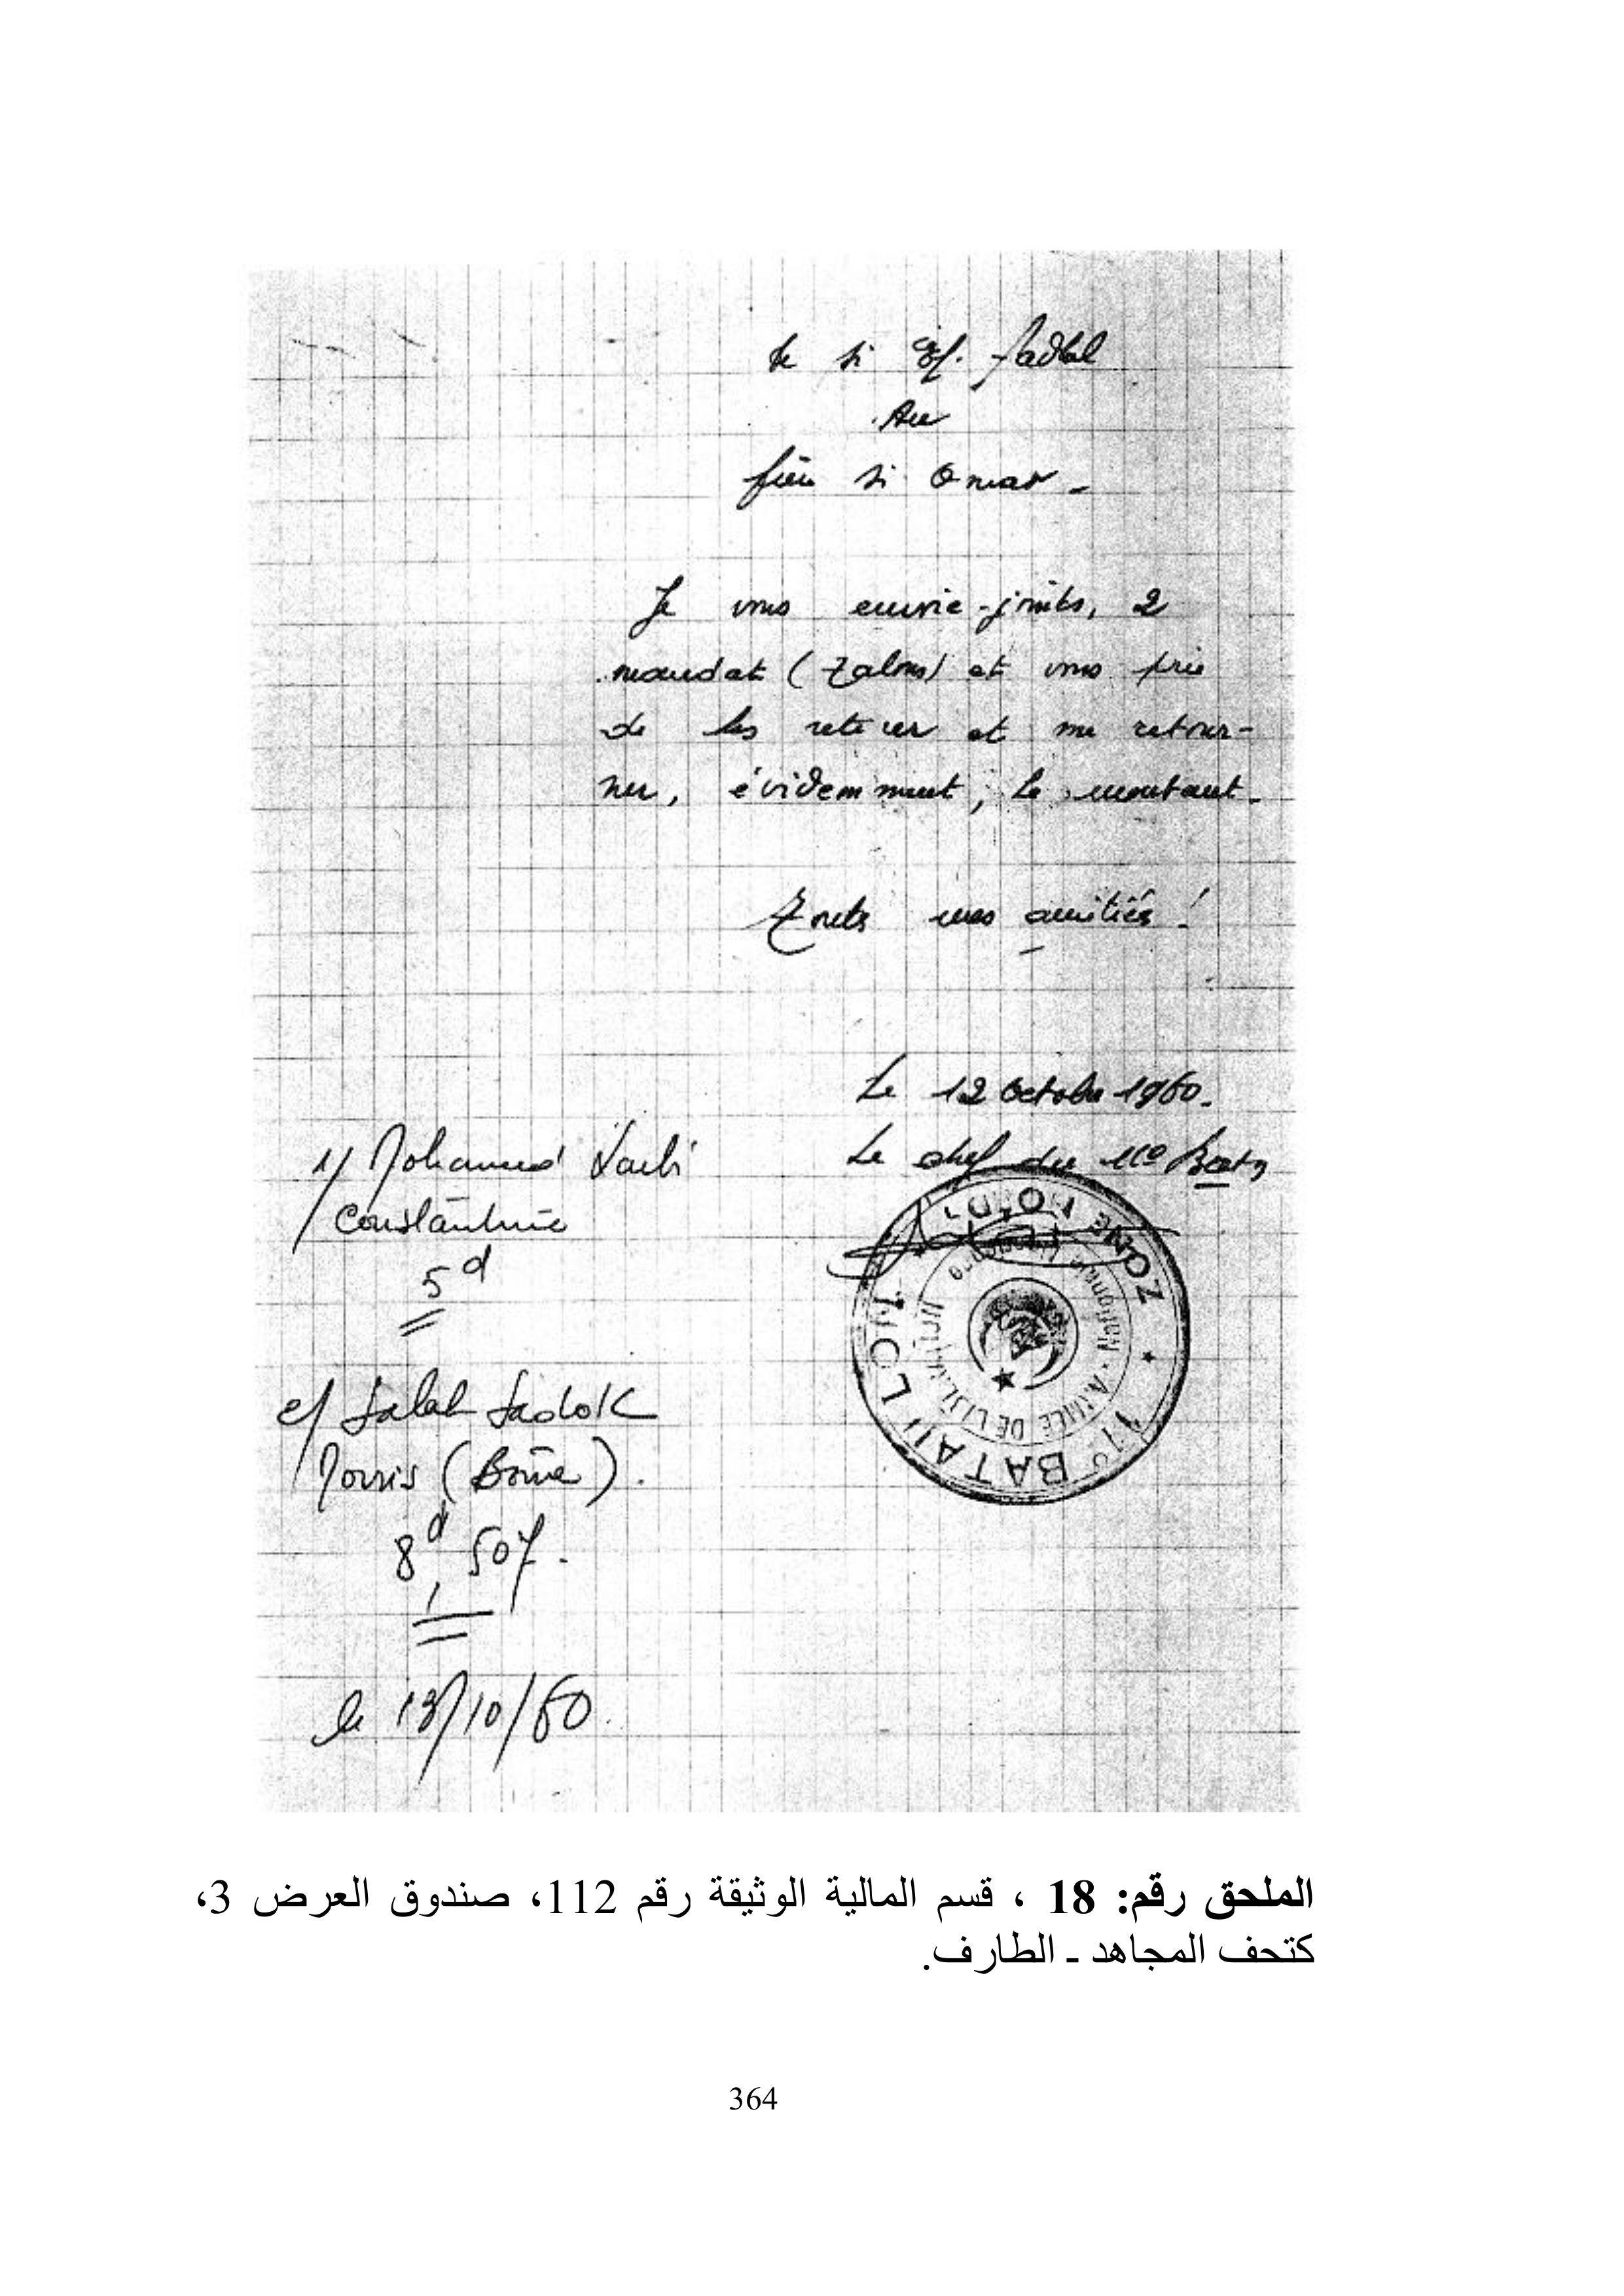 de si Ef. fadhal
Au
frère si Omar -
Je vous envoie-joints, 2
mandat (talons) et vous prie
de les retirer et me retour-
ner, évidemment, le montant.
Toutes mes amitiés !
Le 12 Octobre 1960.
Le chef du 11e Batn
1/ Mohamed Larbi
Constantine
5d
2/ Salah Sadok
Morris (Bône).
8d, 50f.
le 13/10/60
11e BATAILLON ZONE NORD
Nationale - ARMEE DE LIBERATION
الملحق رقم: 18 ، قسم المالية الوثيقة رقم 112، صندوق العرض 3،
كتحف المجاهد ـ الطارف.
364